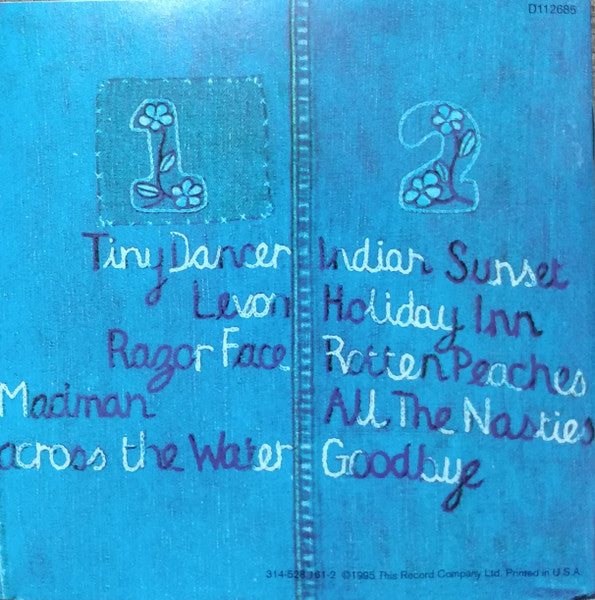 D112685
1
Tiny Dancer
Levon
Razor Face
Madman
across the Water
2
Indian Sunset
Holiday Inn
Rotten Peaches
All The Nasties
Goodbye
314-528 161-2 ©1995 This Record Company Ltd. Printed in U.S.A.